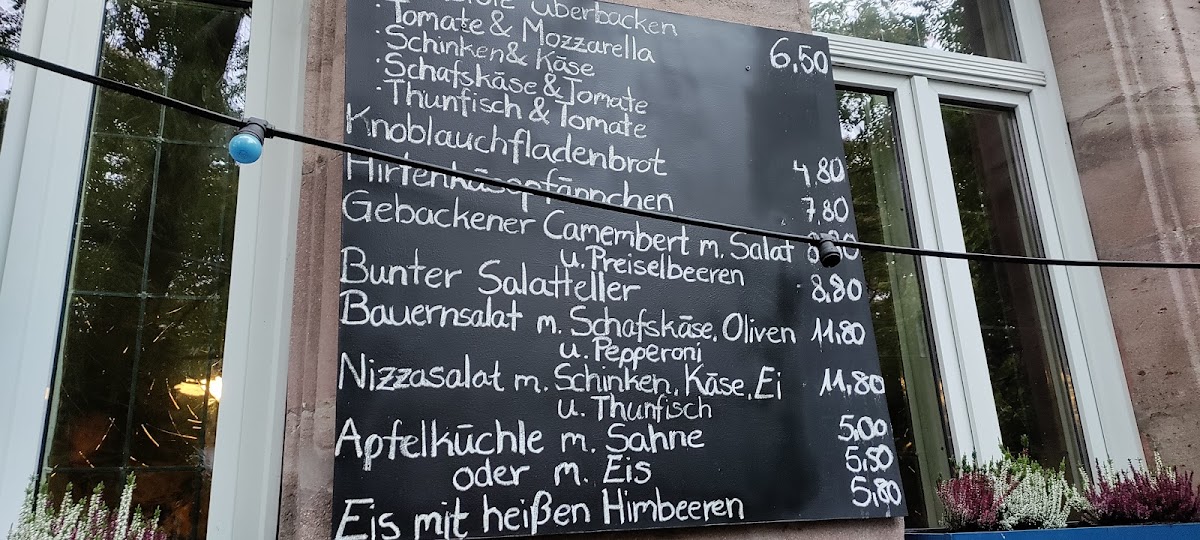 überbacken
· Tomate & Mozzarella 6,50
· Schinken & Käse
· Schafskäse & Tomate
· Thunfisch & Tomate
Knoblauchfladenbrot 4,80
Hirtenkäsepfännchen 7,80
Gebackener Camembert m. Salat
u. Preiselbeeren
Bunter Salatteller 8,80
Bauernsalat m. Schafskäse, Oliven 11,80
u. Pepperoni
Nizzasalat m. Schinken, Käse, Ei 11,80
u. Thunfisch
Apfelküchle m. Sahne 5,00
oder m. Eis 5,50
Eis mit heißen Himbeeren 5,80